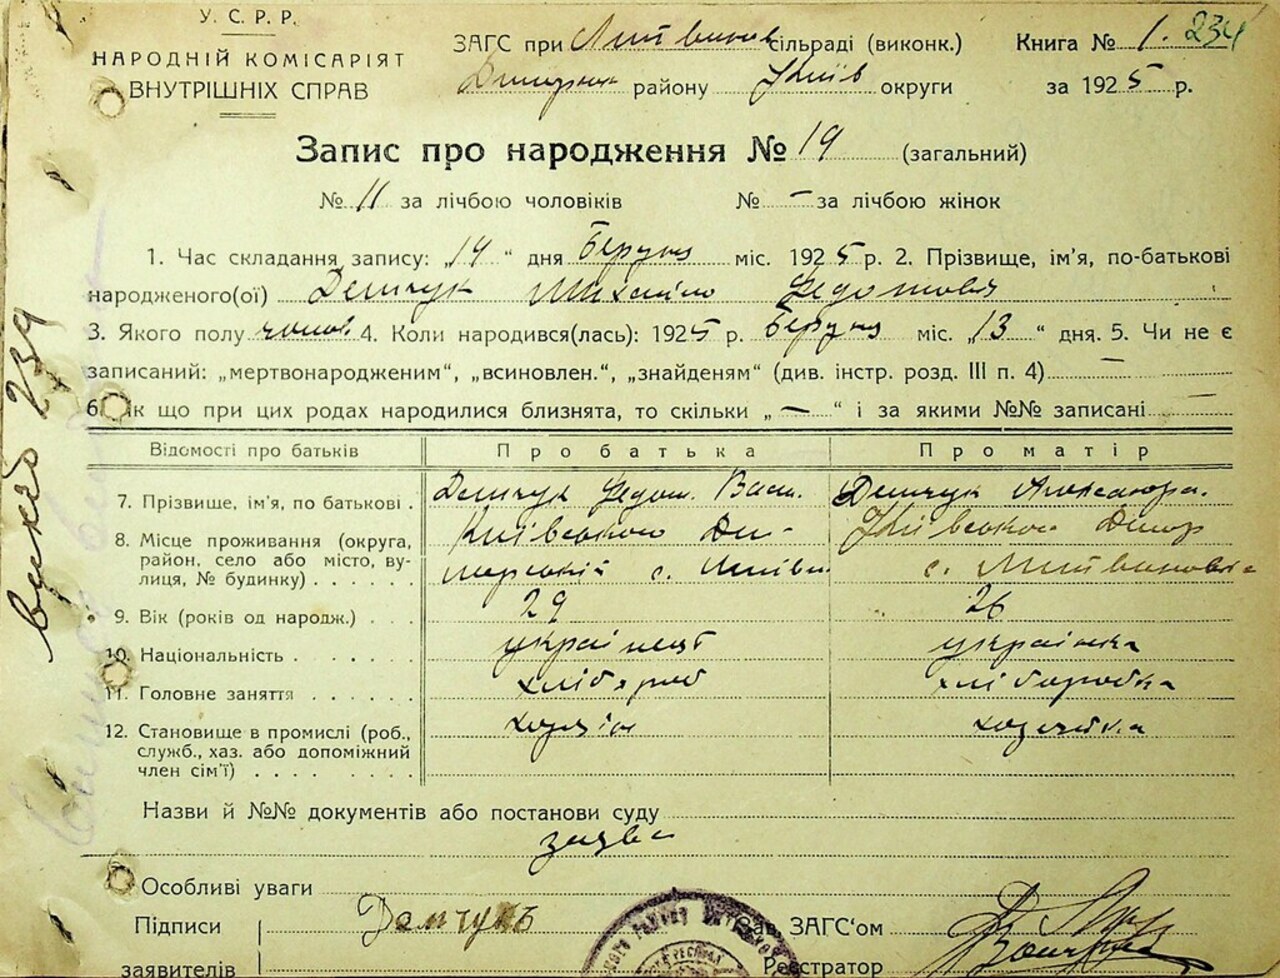 У. С. Р. Р.
НАРОДНІЙ КОМІСАРІЯТ
ВНУТРІШНІХ СПРАВ
ЗАГС при Литвинов сільраді (виконк.)
Димерськ району Київ округи
Книга № 1. 234
за 1925 р.
Запис про народження № 19 (загальний)
№ 11 за лічбою чоловіків № — за лічбою жінок
1. Час складання запису: „14“ дня Березня міс. 1925 р. 2. Прізвище, ім'я, по-батькові
народженого(ої) Демчук Михайло Федотовч
3. Якого полу чолов. 4. Коли народився(лась): 1925 р. Березня міс. „13“ дня. 5. Чи не є
записаний: „мертвонародженим“, „всиновлен.“, „знайденям“ (див. інстр. розд. III п. 4) —
6. Як що при цих родах народилися близнята, то скільки „—“ і за якими №№ записані —
Відомості про батьків Про батька Про матір
7. Прізвище, ім'я, по батькові . Демчук Федот. Вас. Демчук Александра.
8. Місце проживання (округа, район, село або місто, вулиця, № будинку) Київського Ди-
мерський с. Київського Димер
с. Литвиновка
9. Вік (років од народж.) . . . 29 26
10. Національність . . . . . . українець українка
11. Головне заняття . . . . . . хлібороб хліборобка
12. Становище в промислі (роб., хазяїн хозяйка
служб., хаз. або допоміжний
член сім'ї) . . . . . . . .
Назви й №№ документів або постанови суду
заява
Особливі уваги
Підписи Демчукъ Зав. ЗАГС'ом
заявителів Реєстратор